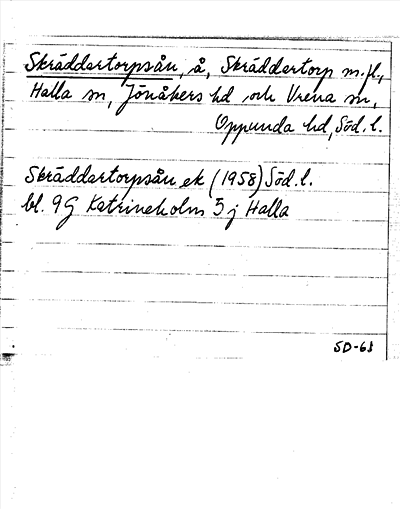 Skräddartorpsån, å, Skräddartorp m.fl.,
Halla sn, Jönåkers hd och Vrena sn,
Oppunda hd, Söd. l.
Skräddartorpsån ek (1958) Söd. l.
bl. 9G Katrineholm 5 j Halla
SD-68